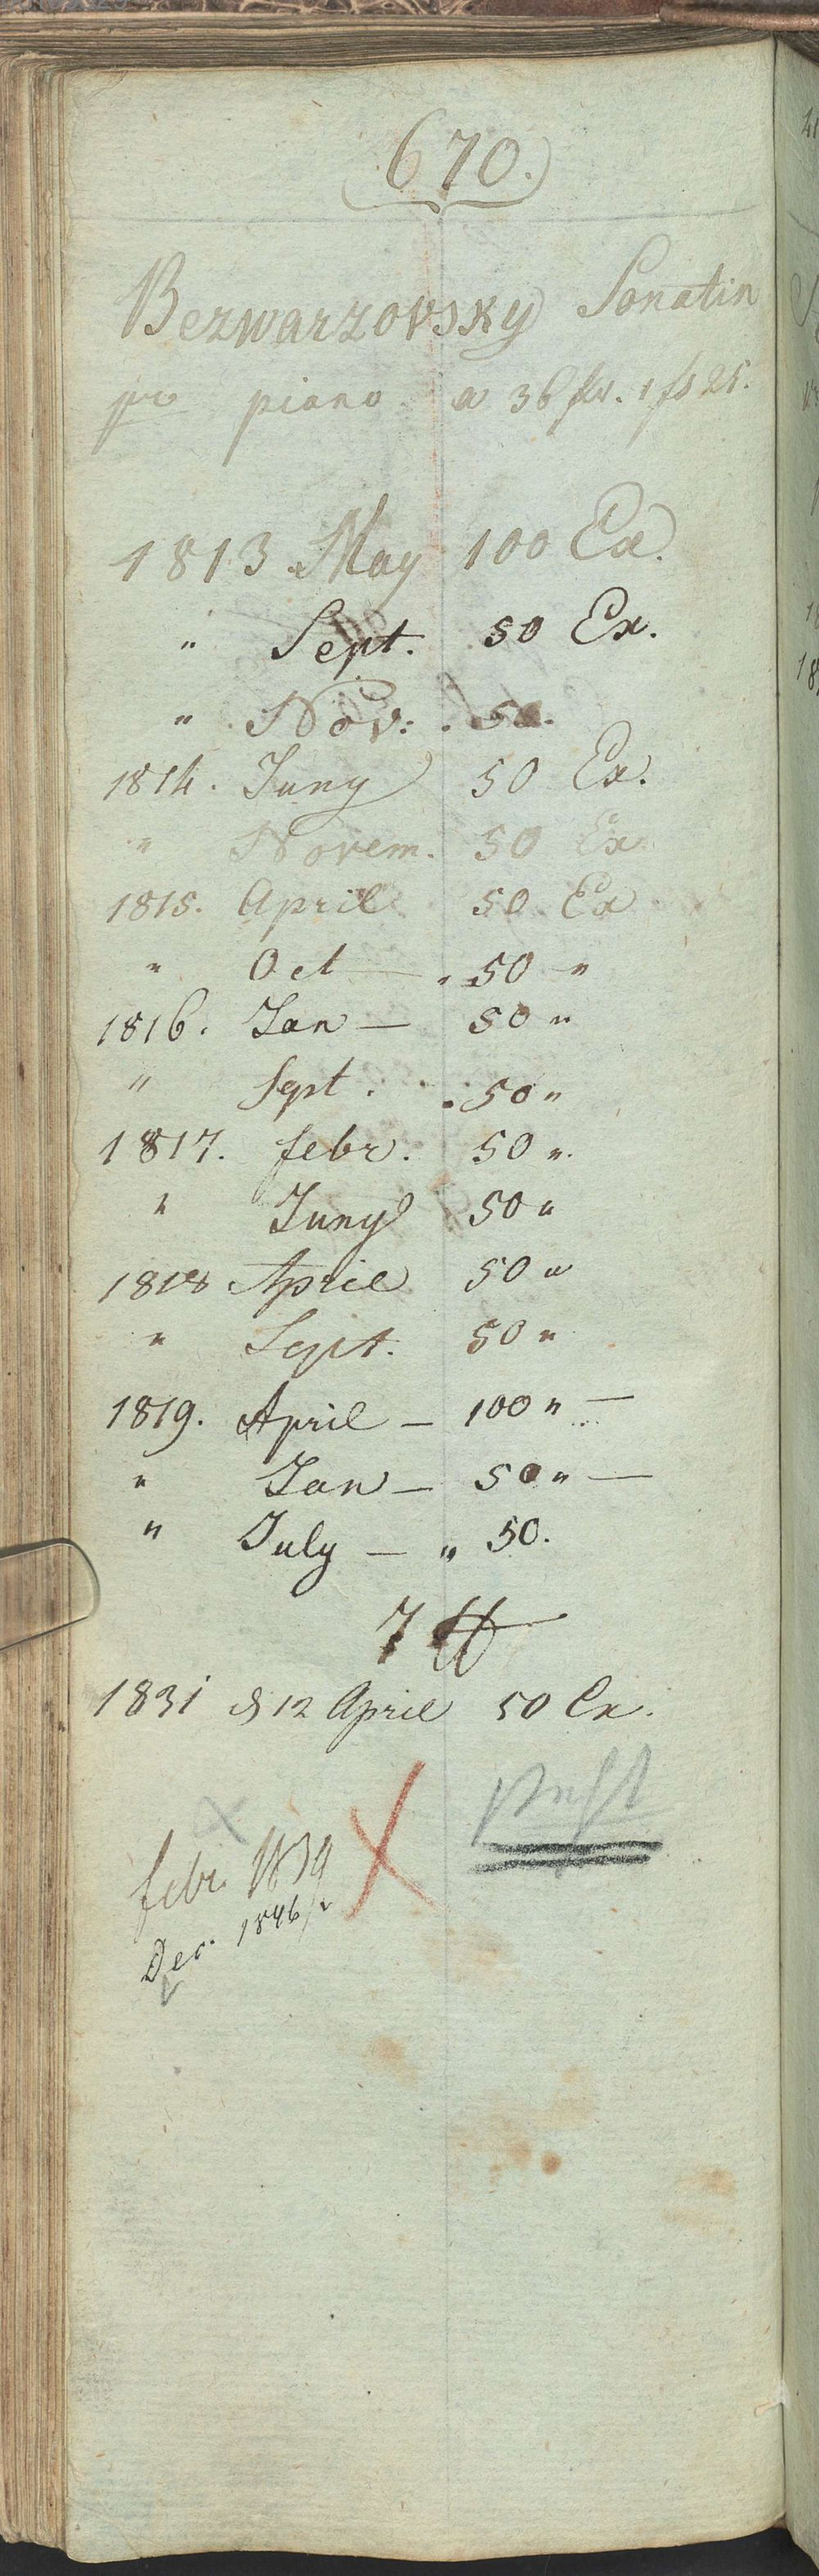 670.
Bezwarzovsky Sonatin
pr piano. a 36 1 25.
1813 May 100 Ex.
" Sept. 50 Ex.
" Nov: . 50.
1814. Juny 50 Ex.
" Novem. 50 Ex
1815. April 50 Ex
" Oct — " 50 "
1816. Jan — 50 "
" Sept. . 50 "
1817. febr. 50 ".
" Juny 50 "
1818 April 50 "
" Sept. 50 "
1819. April — 100 " —
" Jan — 50 " —
" July — " 50.
7
1831 d 12 April 50 Ex.
febr. 1839
Dec. 1846